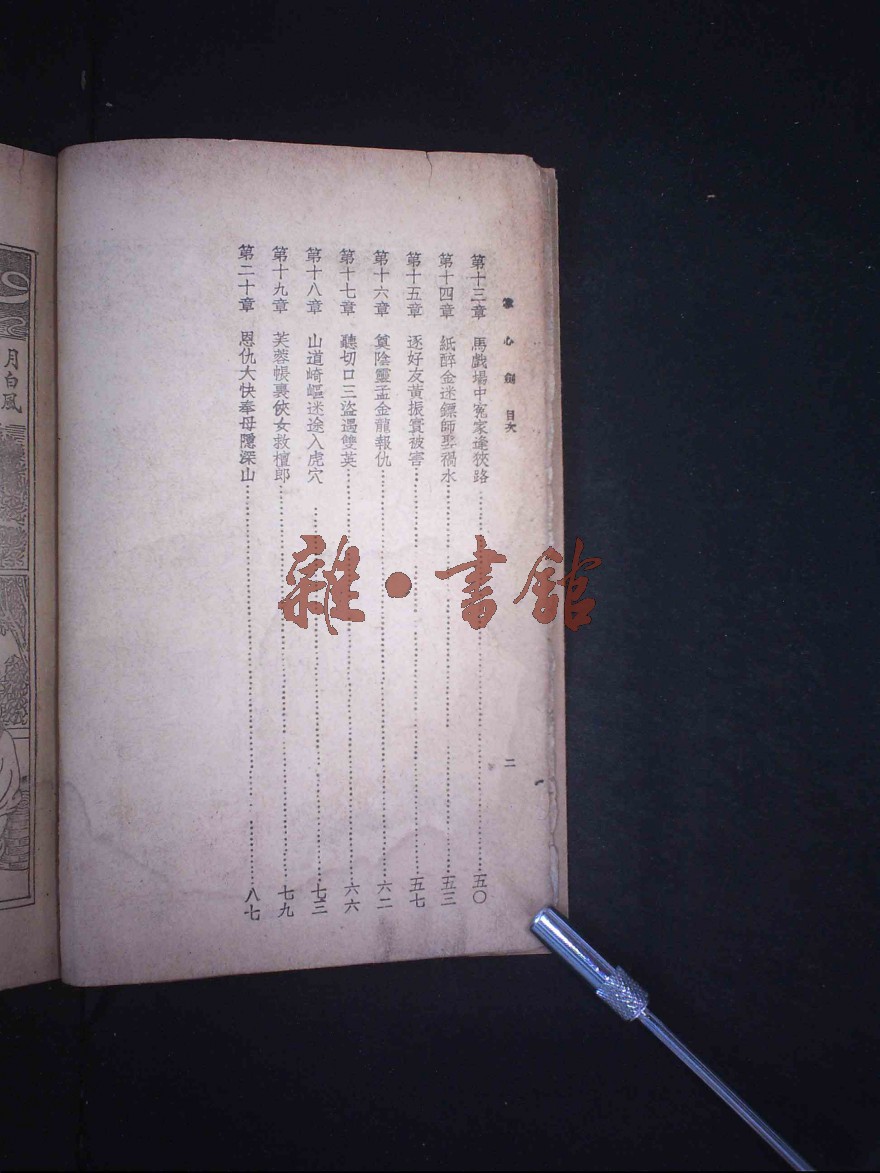 掌心劍 目次
二
第十三章 馬戲場中冤家逢狹路 五〇
第十四章 紙醉金迷鏢師惹禍水 五三
第十五章 逐好友黃振寰被害 五七
第十六章 奠陰靈孟金龍報仇 六二
第十七章 聽切口三盜遇雙英 六六
第十八章 山道崎嶇迷途入虎穴 七三
第十九章 芙蓉帳裏俠女救檀郎 七九
第二十章 恩仇大快奉母隱深山 八七
月白風
雜·書館